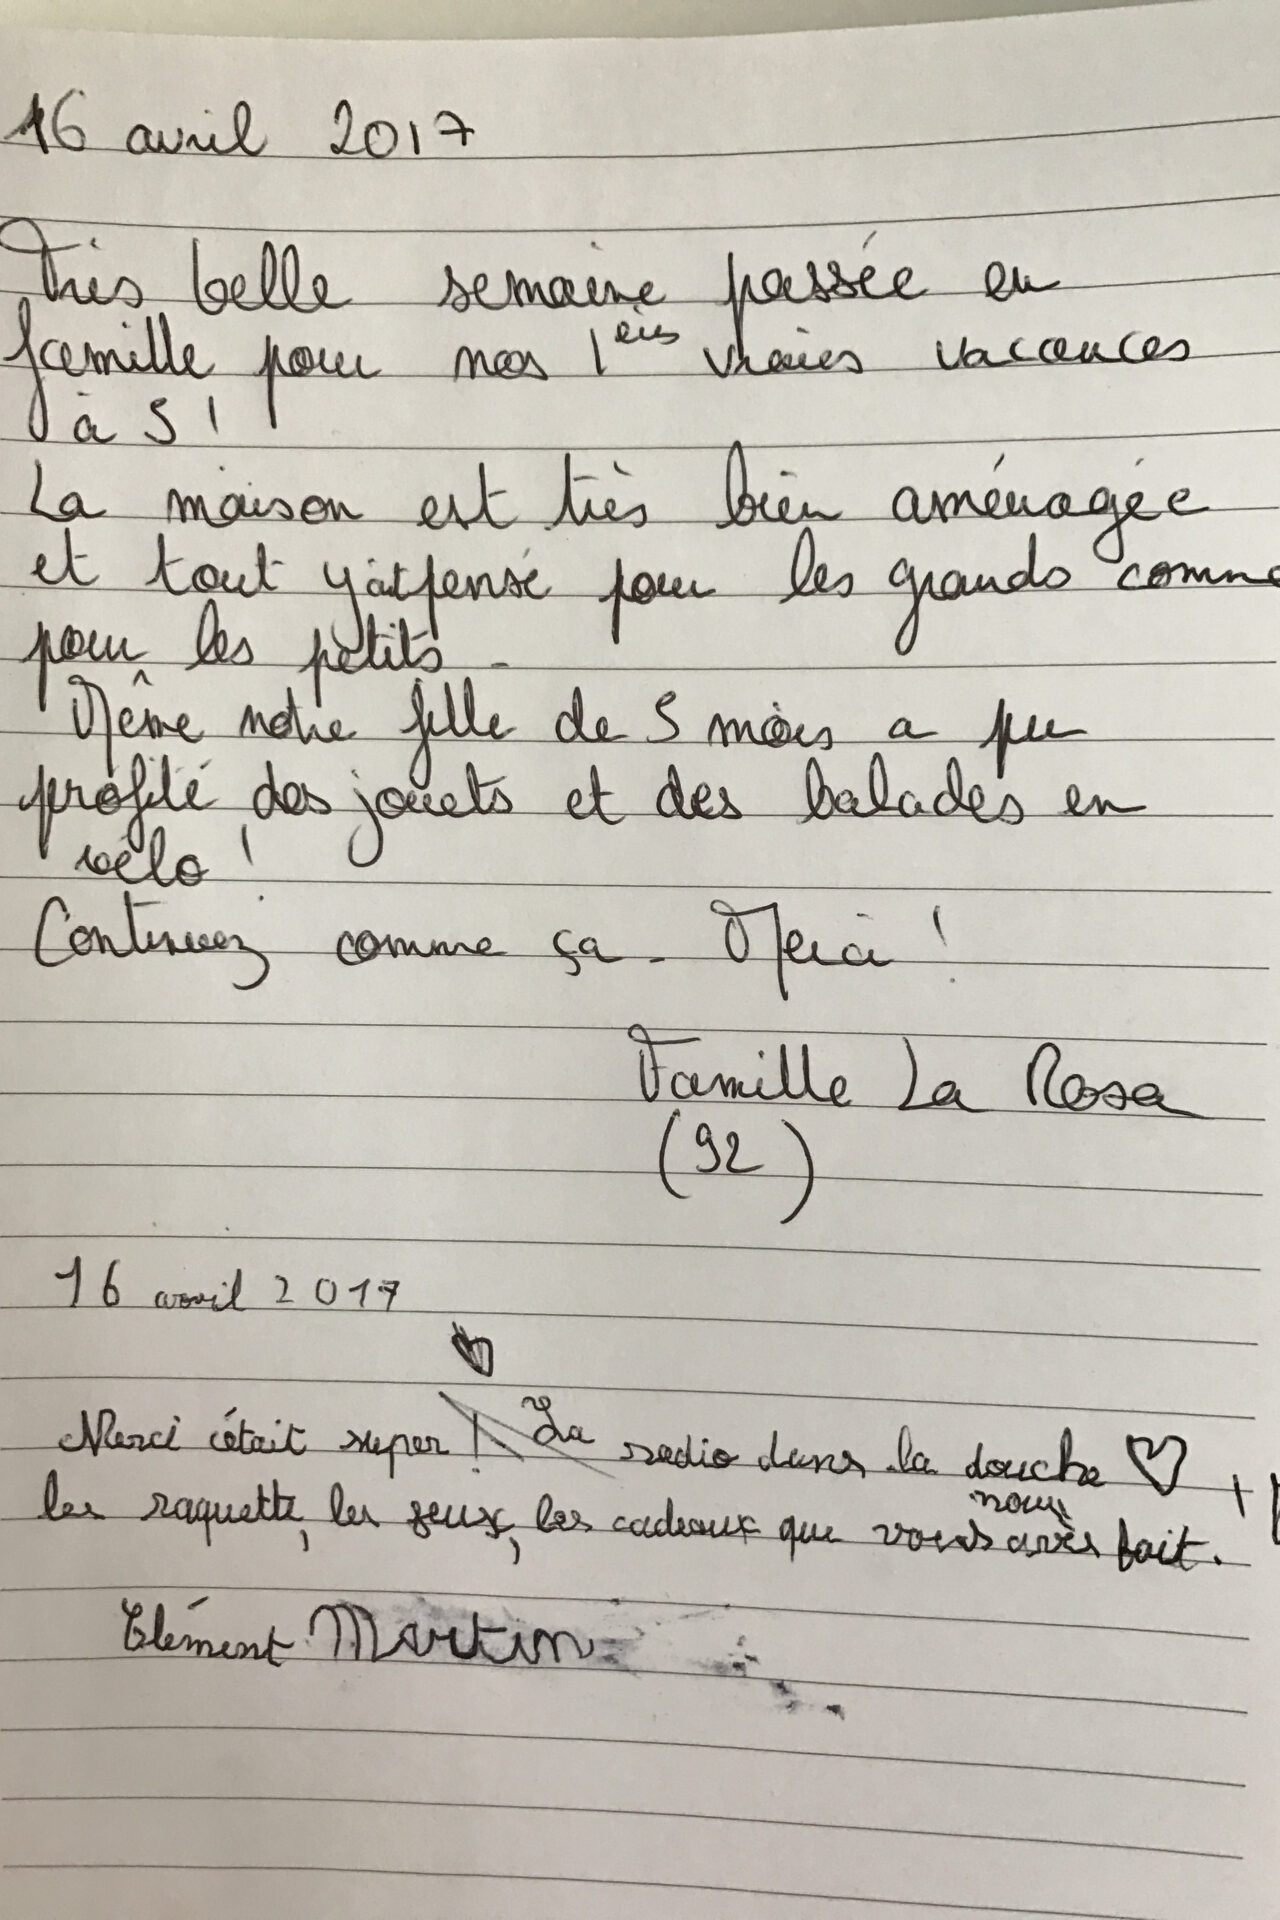 16 avril 2017
Très belle semaine passée en
famille pour nos 1ères vraies vacances
à 5 !
La maison est très bien aménagée
et tout y at pensé pour les grands comme
pour les petits.
Même notre fille de 5 mois a pu
profité des jouets et des balades en
vélo !
Continuez comme ça. Merci !
Famille La Rosa
(92)
16 avril 2017
Merci c'était super ! La radio dans la douche ♡,
les raquette, les jeux, les cadeaux que vous nous avès fait.
Clément Martin